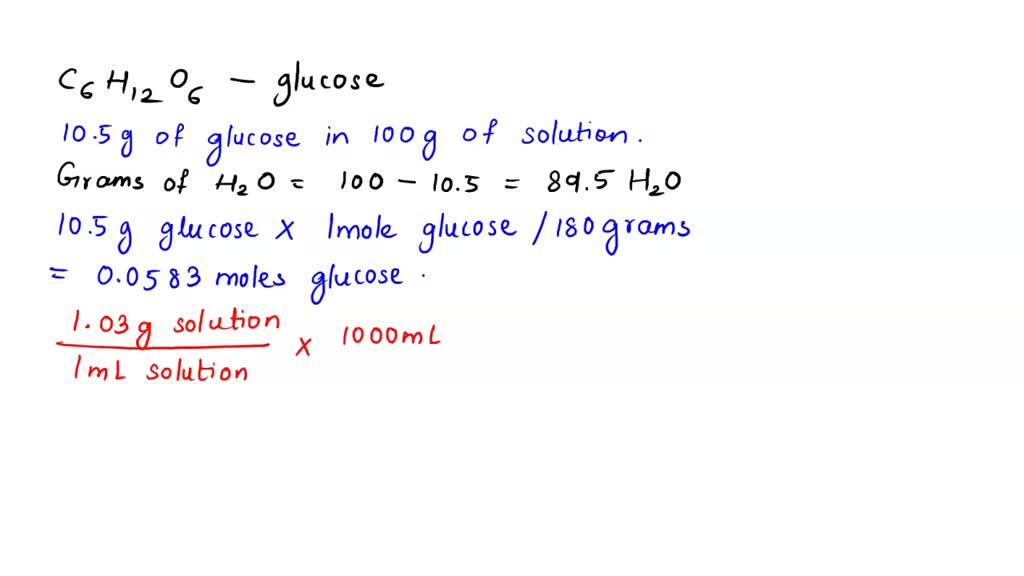 C₆H₁₂O₆ – glucose
10.5g of glucose in 100g of solution.
Grams of H₂O = 100 – 10.5 = 89.5 H₂O
10.5g glucose × 1mole glucose / 180grams
= 0.0583 moles glucose.
1.03g solution × 1000mL
1mL solution